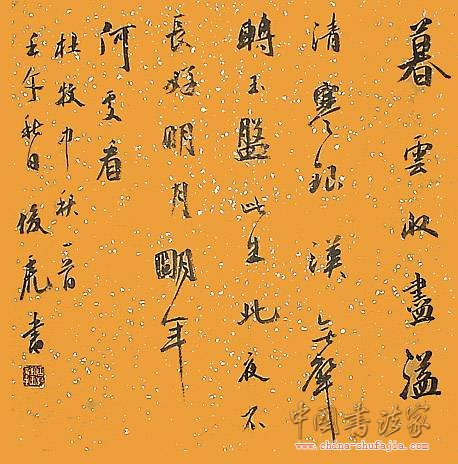 暮雲收盡溢
清寒銀漢無聲
轉玉盤此生此夜不
長好明月明年
何處看
杜牧中秋一首
壬午秋日俊虎書
中國書法家
www.china-chufajia.com